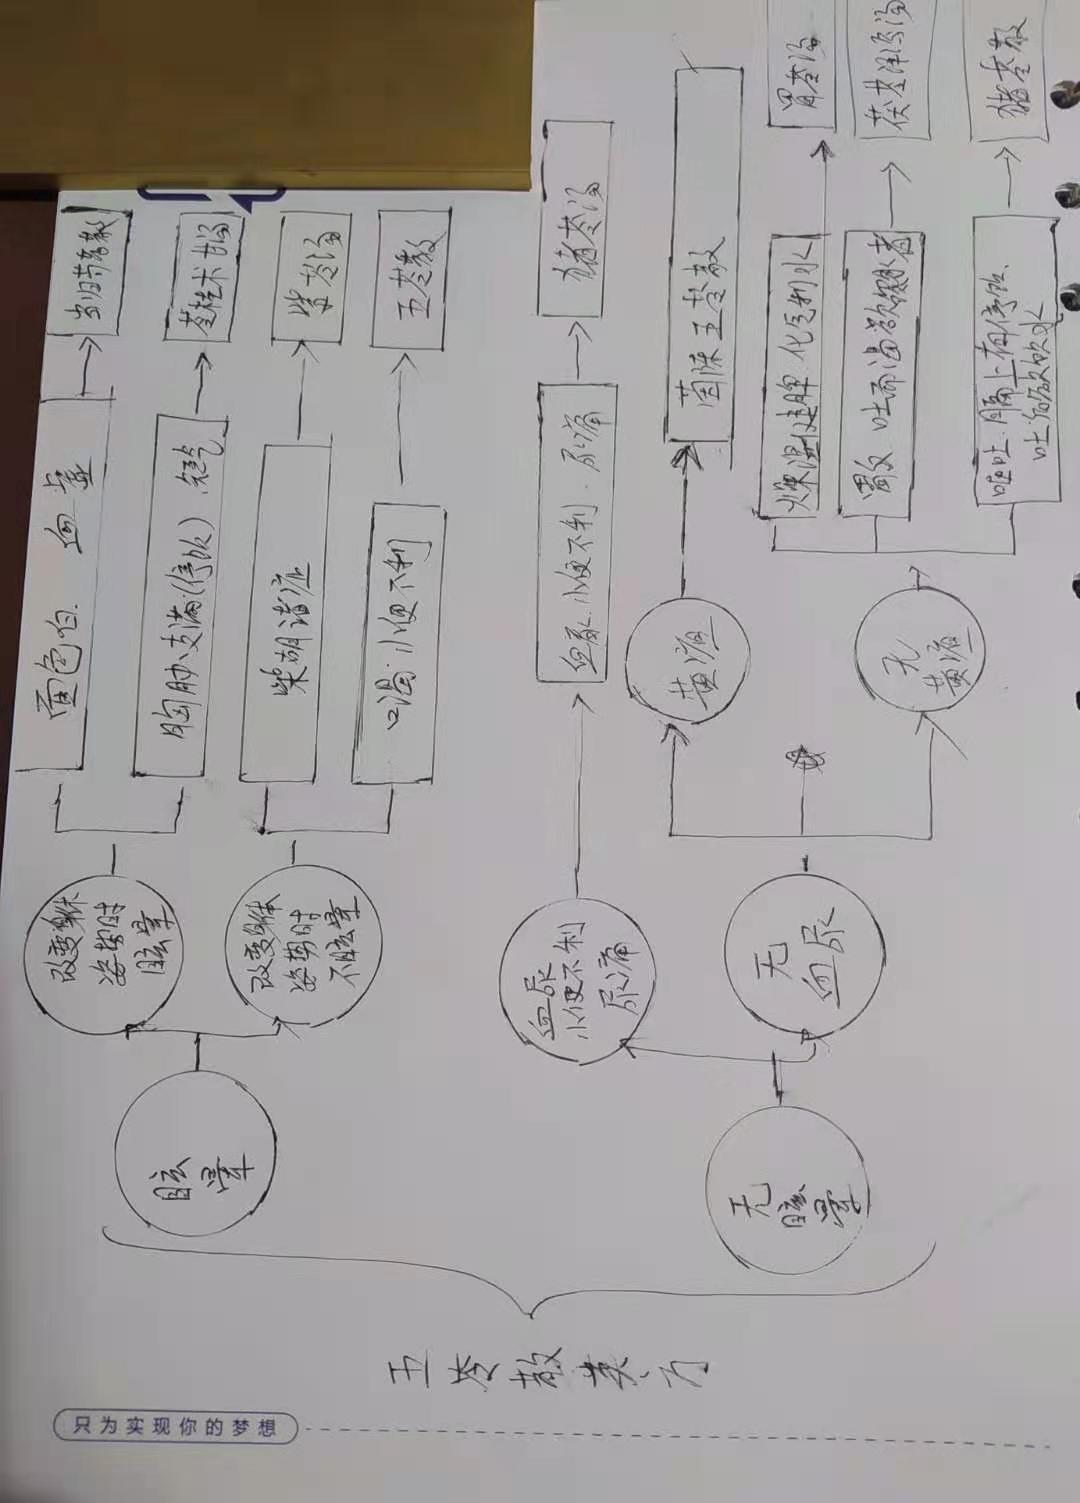 五苓散类方
眩晕
改变身体
姿势时
眩晕
面色白、血虚
当归芍药散
胸胁支满(停饮)、短气
苓桂术甘汤
改变身体
姿势时
不眩晕
柴胡诸症
柴苓汤
口渴、小便不利
五苓散
无
眩晕
血尿
小便不利
尿痛
血尿、小便不利、尿痛
猪苓汤
无
血尿
黄疸
茵陈五苓散
无
黄疸
燥湿健脾 化气利水
胃苓汤
胃反 吐而渴欲饮水者
茯苓泽泻汤
呕吐、膈上有停饮、
吐后欲饮水
猪苓散
只为实现你的梦想